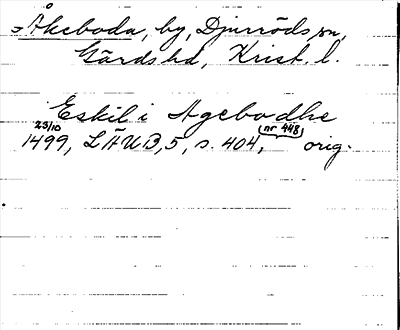 Åkeboda, by, Djurröds sn,
Gärds hd, Krist. l.
Eskil i Agebodhe
23/10
1499, LÄUB, 5, s. 404, (nr 448) orig.